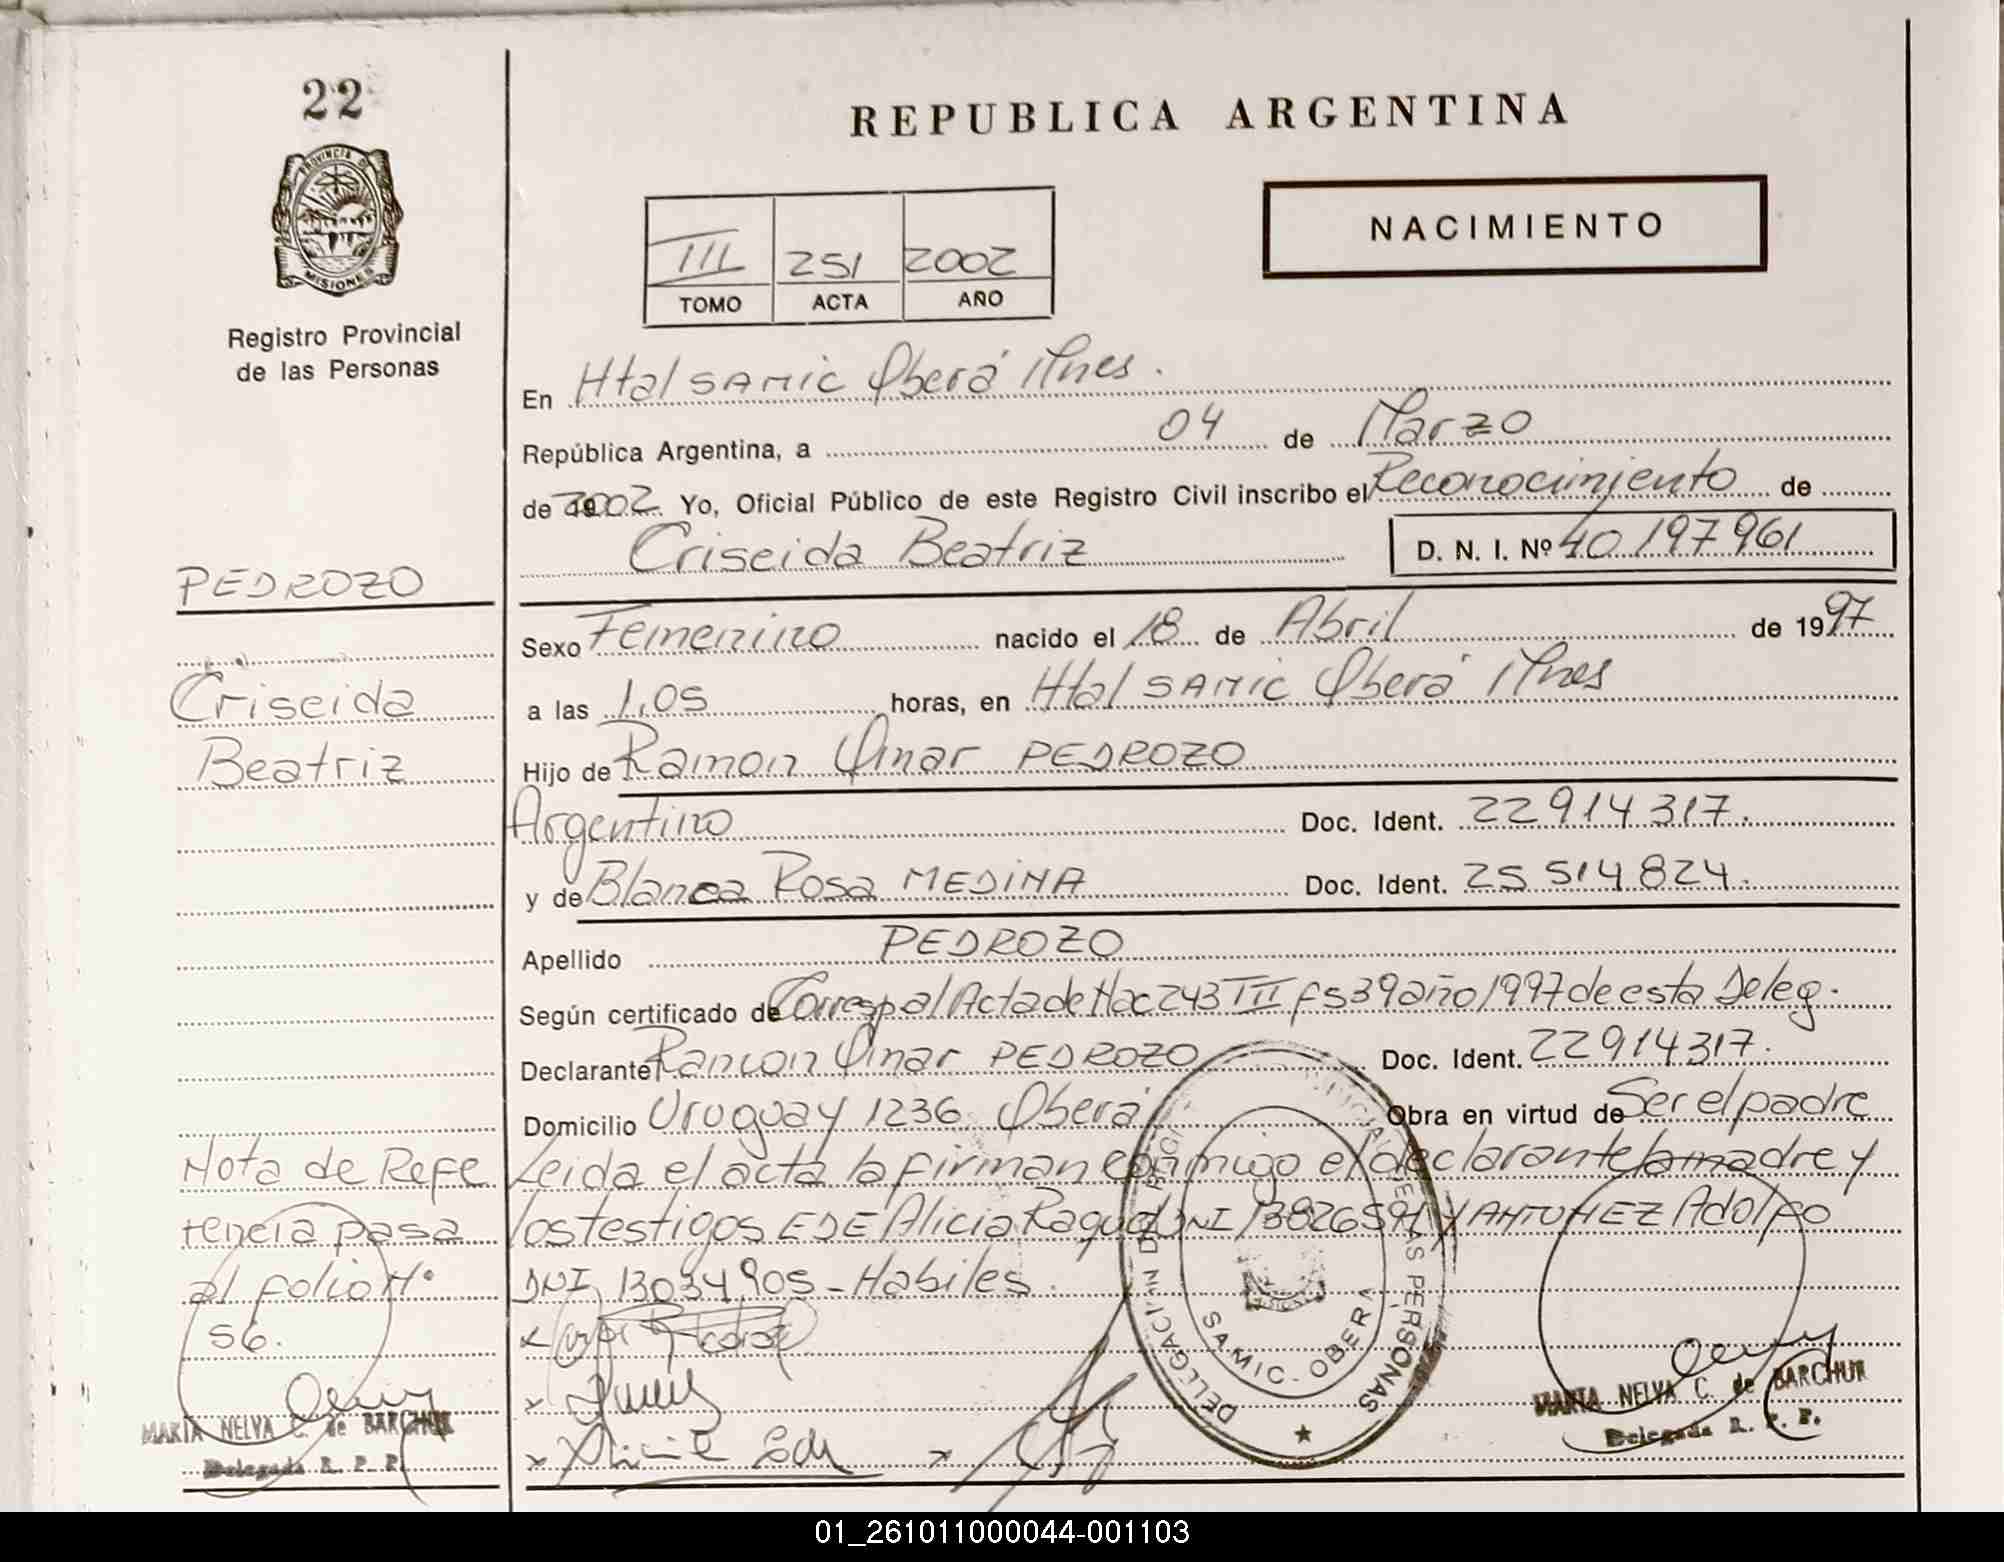 22
REPUBLICA ARGENTINA
PROVINCIA DE
MISIONES
Registro Provincial
de las Personas
NACIMIENTO
III 251 2002
TOMO ACTA AÑO
En Htal SAMIC Oberá Mnes.
República Argentina, a 04 de Marzo
de 2002 Yo, Oficial Público de este Registro Civil inscribo el Reconocimiento de
Criseida Beatriz D. N. I. Nº 40.197.961
PEDROZO
Criseida
Beatriz
Sexo Femenino nacido el 18 de Abril de 1997
a las 1,05 horas, en Htal SAMIC Oberá Mnes
Hijo de Ramon Omar PEDROZO
Argentino Doc. Ident. 22914317.
y de Blanca Rosa MEDINA Doc. Ident. 25514824.
Apellido PEDROZO
Según certificado de Corresp al Acta de Nac 243 III fs 39 año 1997 de esta Deleg.
Declarante Ramon Omar PEDROZO Doc. Ident. 22914317.
Domicilio Uruguay 1236 Oberá Obra en virtud de Ser el padre
Leida el acta la firman conmigo el declarante la madre y
los testigos EDE Alicia Raquel DNI y ANTUNEZ Adolfo
DNI 13034905 - Habiles.
Nota de Refe
rencia pasa
al folio Nº
56.
MARTA NELVA C. de BARCHUK
Delegada R. P. P.
DELEGACION
DE LAS PERSONAS
SAMIC - OBERA
MARTA NELVA C. de BARCHUK
Delegada R. P. P.
01_261011000044-001103